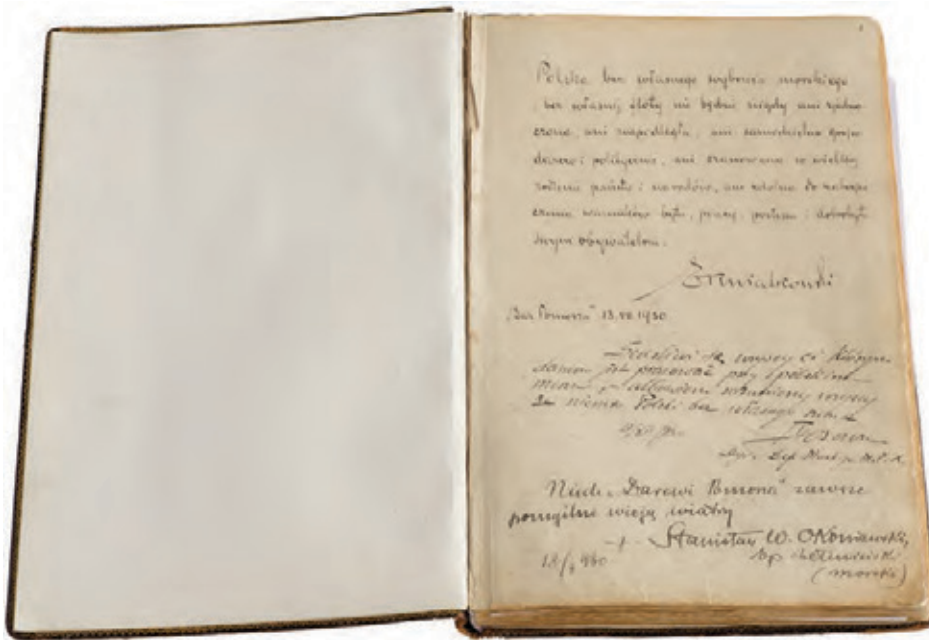 Polska bez własnego wybrzeża morskiego
i bez własnej floty nie będzie nigdy ani zjedno
czona, ani niepodległa, ani samodzielna gospo
darczo i politycznie, ani szanowana w wielkiej
rodzinie państw i narodów, ani zdolna do zabezpie
czenia warunków bytu, pracy, postępu i dobrobytu
swym obywatelom.
EKwiatkowski
"Dar Pomorza" 13.VII.1930
są wszyscy ci którym
danem jest pracować przy polskim
morzu
że niema Polski bez własnego
Niech "Darowi Pomorza" zawsze
pomyślne wieją wiatry
-†- Stanisław W. Okoniewski,
bp chełmiński
(morski)